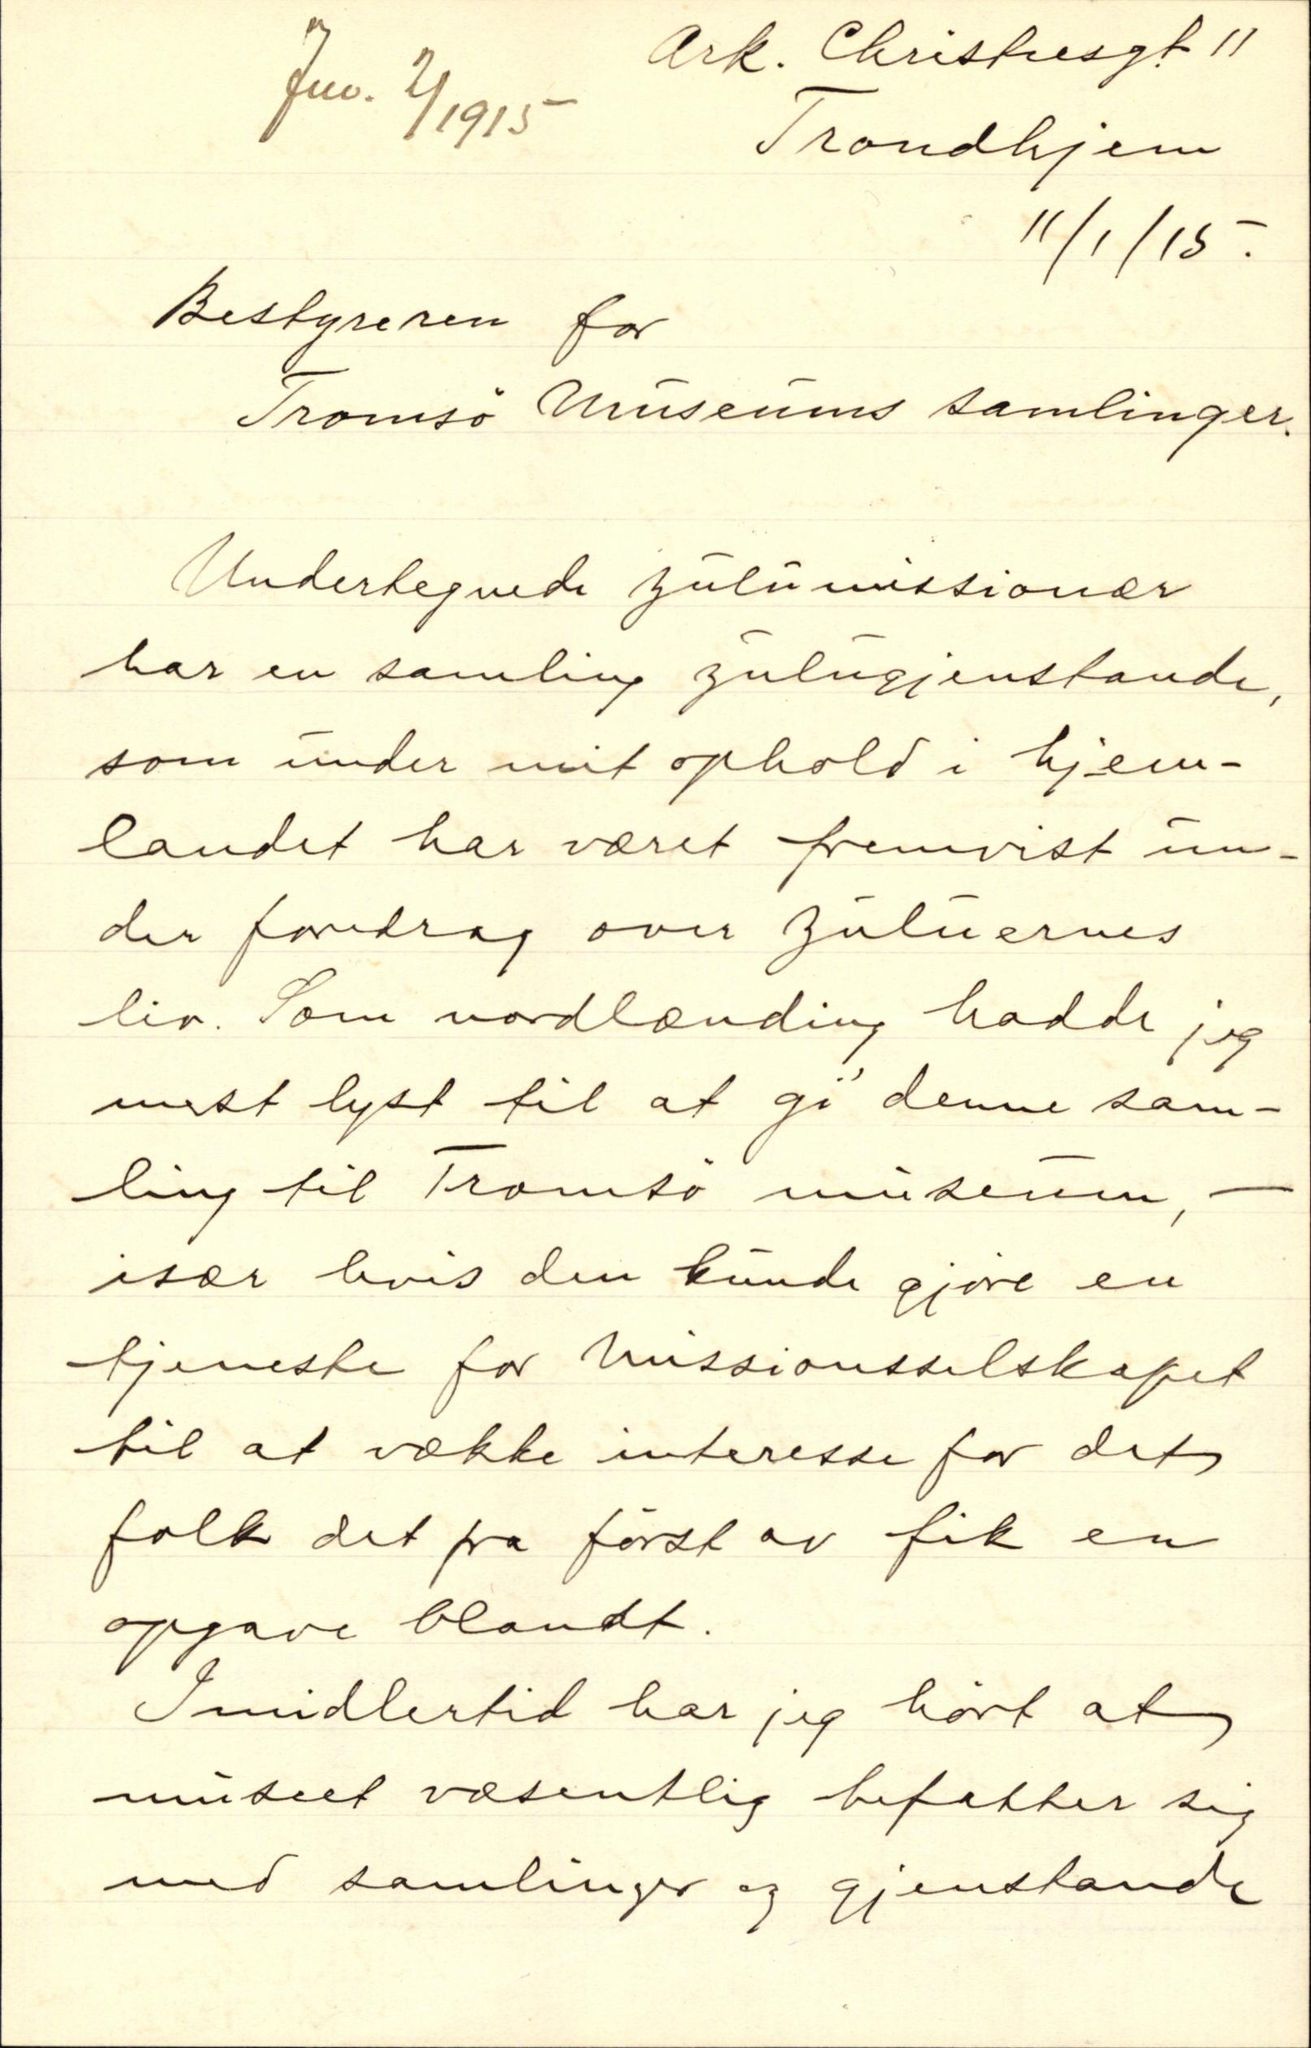 Ark. Christiesgt 11
Jnr. 2/1915
Trondhjem
11/1/15.
Bestyreren for
Tromsö Museums samlinger.
Undertegnede zulumissionær
har en samling zulugjenstande,
som under mit ophold i hjem-
landet har været fremvist un-
der foredrag over zuluernes
liv. Som nordlænding hadde jeg
mest lyst til at gi denne sam-
ling til Tromsö museum, —
især hvis den kunde gjöre en
tjeneste for Missionsselskapet
til at vække interesse for det
folk det fra först av fik en
opgave blandt.
Imidlertid har jeg hört at
museet væsentlig befatter sig
med samlinger og gjenstande